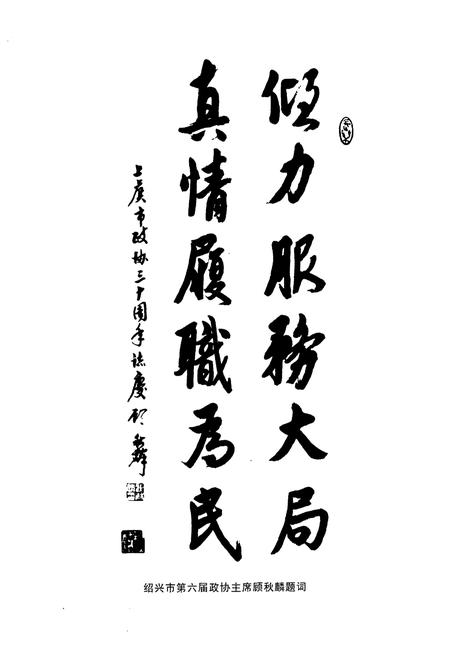 倾力服務大局
真情履職为民
上虞市政协三十周年誌慶 顾秋麟
绍兴市第六届政协主席顾秋麟题词